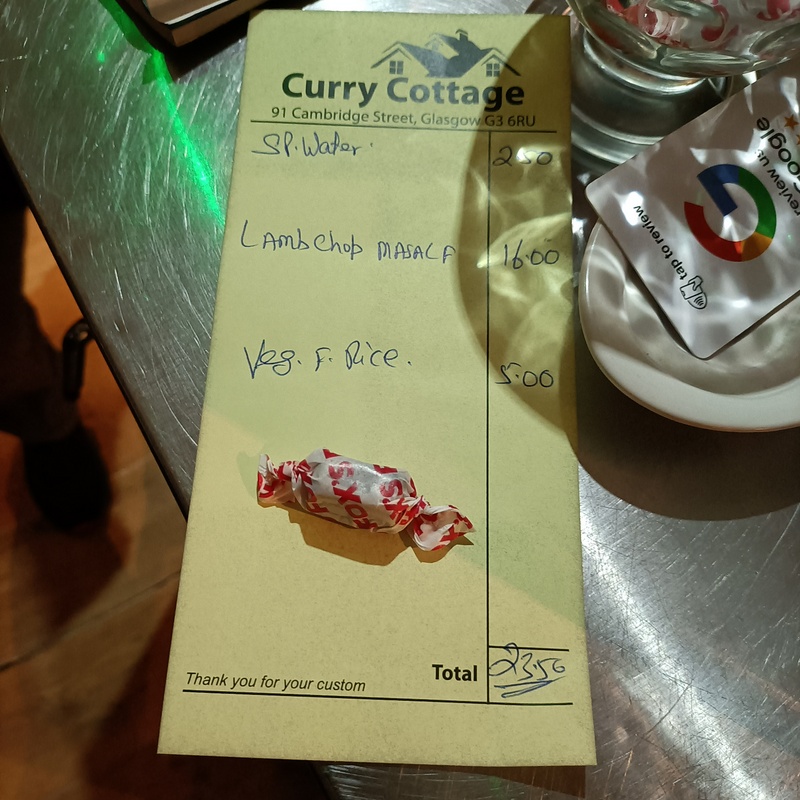 Curry Cottage
91 Cambridge Street, Glasgow G3 6RU
SP. Water. 2.50
Lamb Chop MASALA 16.00
Veg. F. Rice. 5.00
FOX'S
Total 23.50
Thank you for your custom
review us
Google
tap to review